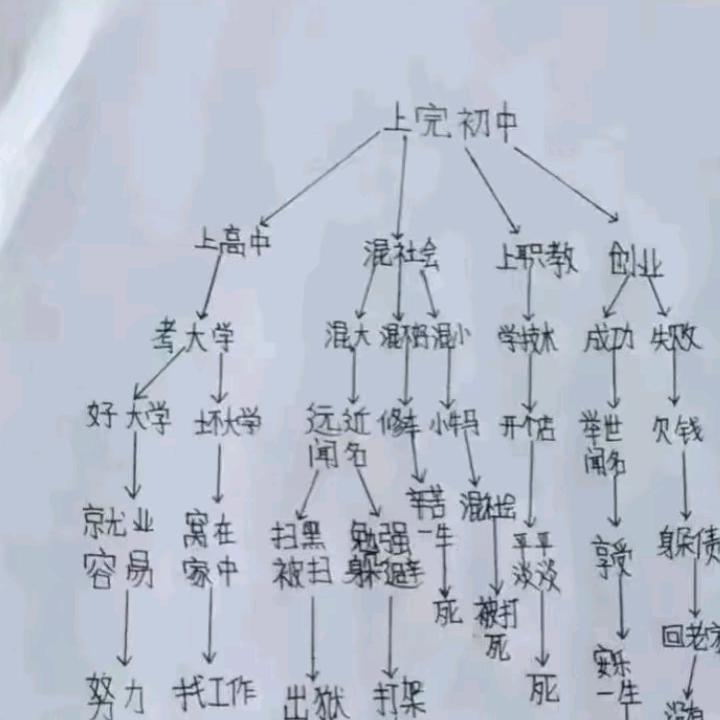 上完初中
上高中 混社会 上职教 创业
考大学 混大 混不好 混小 学技术 成功 失败
好大学 坏大学 远近 修车 小牛马 开个店 举世 欠钱
闻名 闻名
辛苦 混社会
就业 窝在 扫黑 勉强 一生 平平 享受 躲债
容易 家中 被扫 躲避 淡淡
死 被打
死 回老家
安乐
努力 找工作 出狱 打架 死 一生
没有